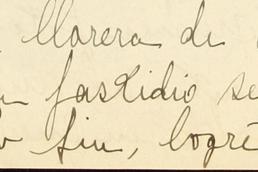 llorera de
fastidio se
fin, logré